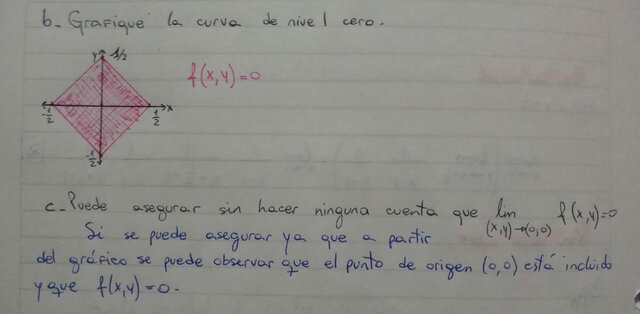 b_ Grafique la curva de nivel cero.
y 1/2
f(x,y)=0
-1/2 1/2 x
-1/2
c_ Puede asegurar sin hacer ninguna cuenta que lim f(x,y)=0
(x,y)→(0,0)
Si se puede asegurar ya que a partir
del gráfico se puede observar que el punto de origen (0,0) está incluido
y que f(x,y)=0.